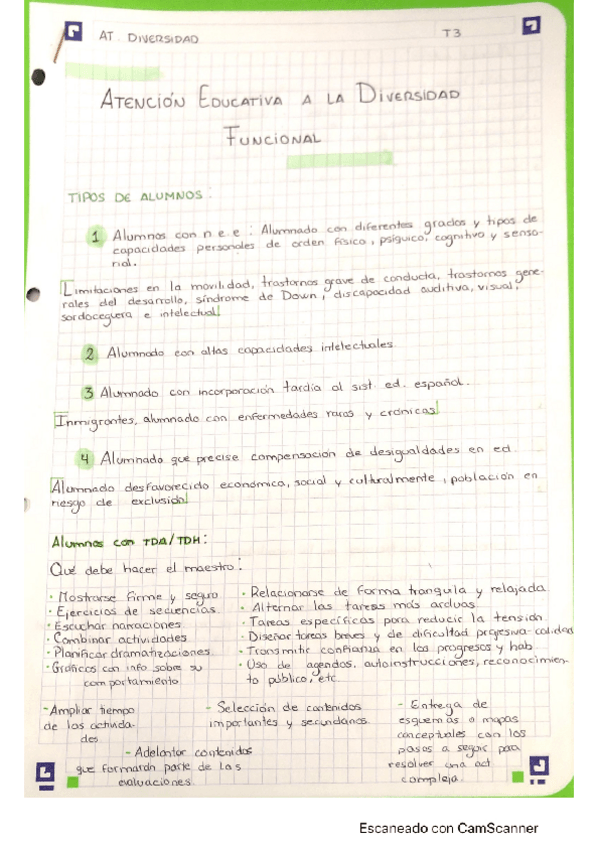 AT. DIVERSIDAD
T3
ATENCIÓN EDUCATIVA A LA DIVERSIDAD
FUNCIONAL
TIPOS DE ALUMNOS:
1 Alumnos con n.e.e : Alumnado con diferentes grados y tipos de
capacidades personales de orden físico, psíquico, cognitivo y senso-
rial.
Limitaciones en la movilidad, trastornos grave de conducta, trastornos gene-
rales del desarrollo, síndrome de Down, discapacidad auditiva, visual,
sordoceguera e intelectual
2 Alumnado con altas capacidades intelectuales
3 Alumnado con incorporación tardía al sist. ed. español.
Inmigrantes, alumnado con enfermedades raras y crónicas
4 Alumnado que precise compensación de desigualdades en ed
Alumnado desfavorecido económica, social y culturalmente, población en
riesgo de exclusión
Alumnos con TDA/TDH:
Qué debe hacer el maestro:
· Mostrarse firme y seguro
· Ejercicios de secuencias
· Escuchar narraciones
· Combinar actividades
· Planificar dramatizaciones
· Gráficos con info sobre su
comportamiento
· Relacionarse de forma tranquila y relajada
· Alternar las tareas más arduas
· Tareas específicas para reducir la tensión
· Diseñar tareas breves y de dificultad progresiva-calidad
· Transmitir confianza en los progresos y hab
· Uso de agendas, autoinstrucciones, reconocimien-
to público, etc
- Ampliar tiempo
de las activida-
des
- Selección de contenidos
importantes y secundarios
- Adelantar contenidos
que formarán parte de las
evaluaciones
- Entrega de
esquemas o mapas
conceptuales con los
pasos a seguir para
resolver una act
compleja
Escaneado con CamScanner